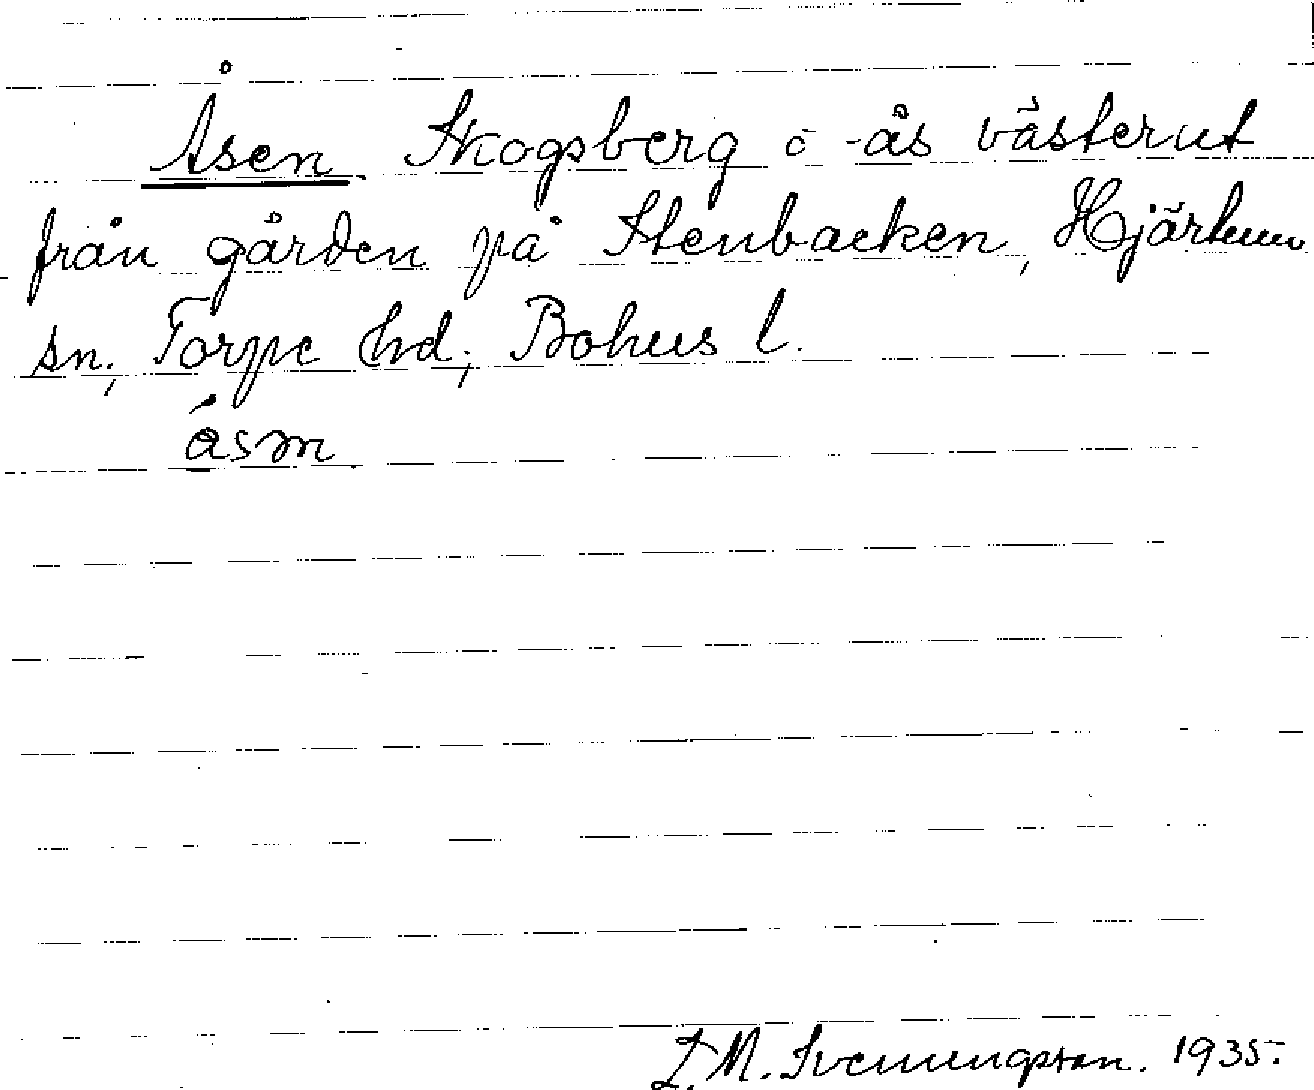 Åsen. Skogsberg o -ås västerut
från gården på Stenbacken, Hjärtum
sn; Torpe hd; Bohus l.
åsm
L. M. Svenungsson. 1935.